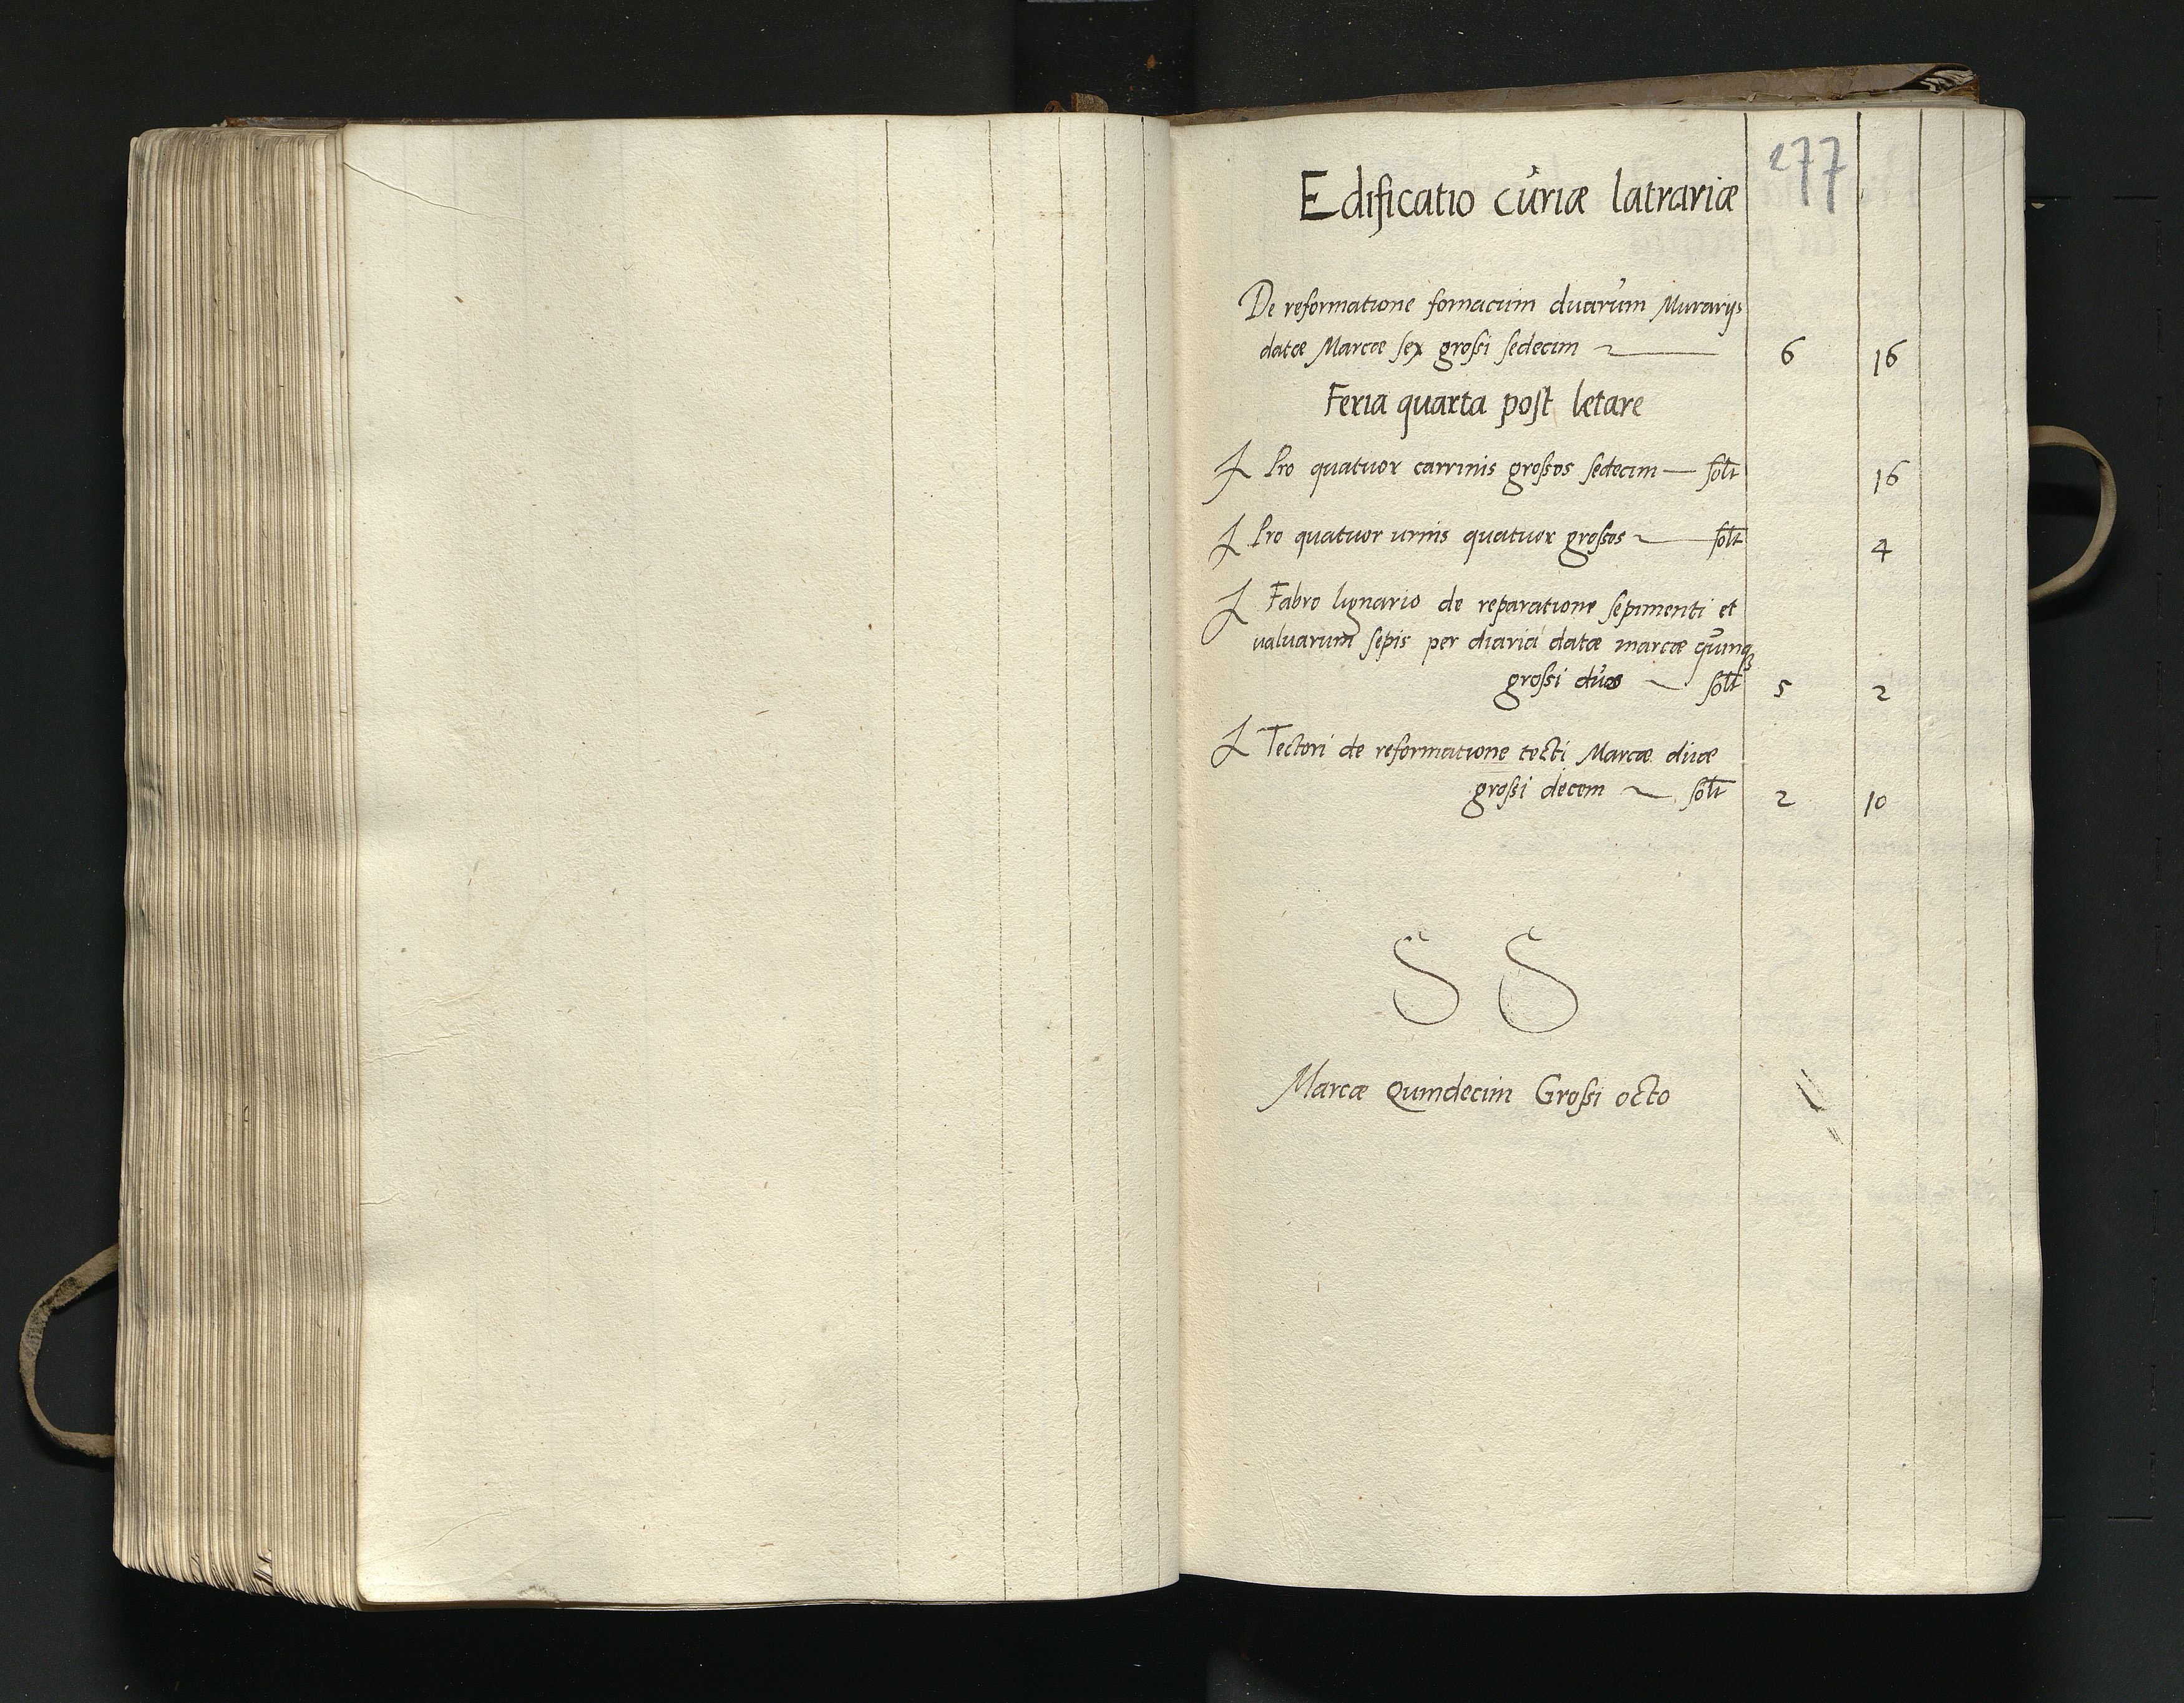 277
Edificatio curiæ latrariæ
De reformatione fornacum duarum Murarijs
datæ Marcæ sex grossi sedecim 6 16
Feria quarta post letare
Pro quatuor carrinis grossos sedecim — solt 16
Pro quatuor urnis quatuor grossos — solt 4
Fabro lignario de reparatione sepimenti et
valuarum sepis per diaria datæ marcæ quinq3
grossi duo solt 5 2
Tectori de reformatione tecti Marcæ duæ
grossi decem solt 2 10
S S
Marcæ Quindecim Grossi octo